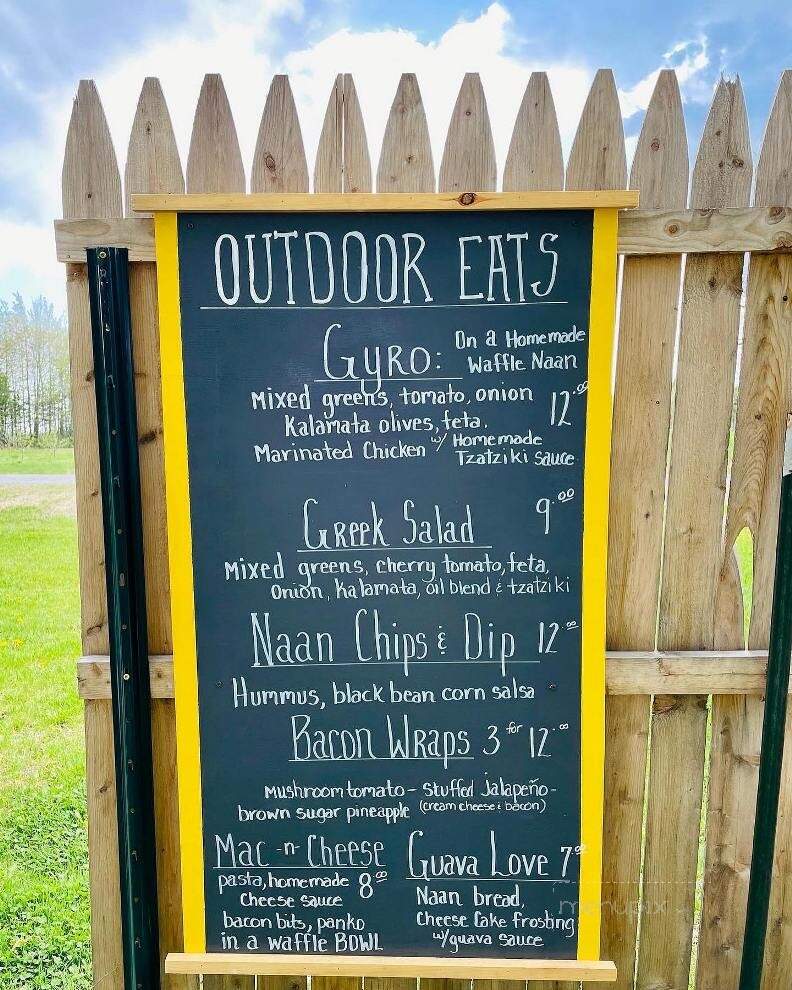 OUTDOOR EATS
Gyro: On a Homemade
Waffle Naan
Mixed greens, tomato, onion
Kalamata olives, feta. 12.00
Marinated Chicken w/ Homemade
Tzatziki sauce
Greek Salad 9.00
Mixed greens, cherry tomato, feta,
Onion, Kalamata, oil blend & tzatziki
Naan Chips & Dip 12.00
Hummus, black bean corn salsa
Bacon Wraps 3 for 12.00
Mushroom tomato - Stuffed Jalapeño -
brown sugar pineapple (cream cheese & bacon)
Mac -n- Cheese
pasta, homemade 8.00
Cheese sauce
bacon bits, panko
in a waffle BOWL
Guava Love 7.00
Naan bread,
Cheese Cake frosting
w/guava sauce
menupix